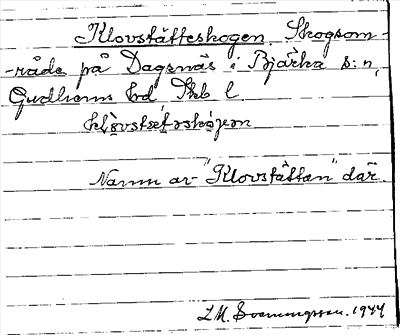 Klovstätteskogen Skogsom-
-råde på Dagsnäs i Bjärka s:n,
Gudhems hd Skb l
Namn av "Klovstättan" där.
L.M. Svenungsson. 1944